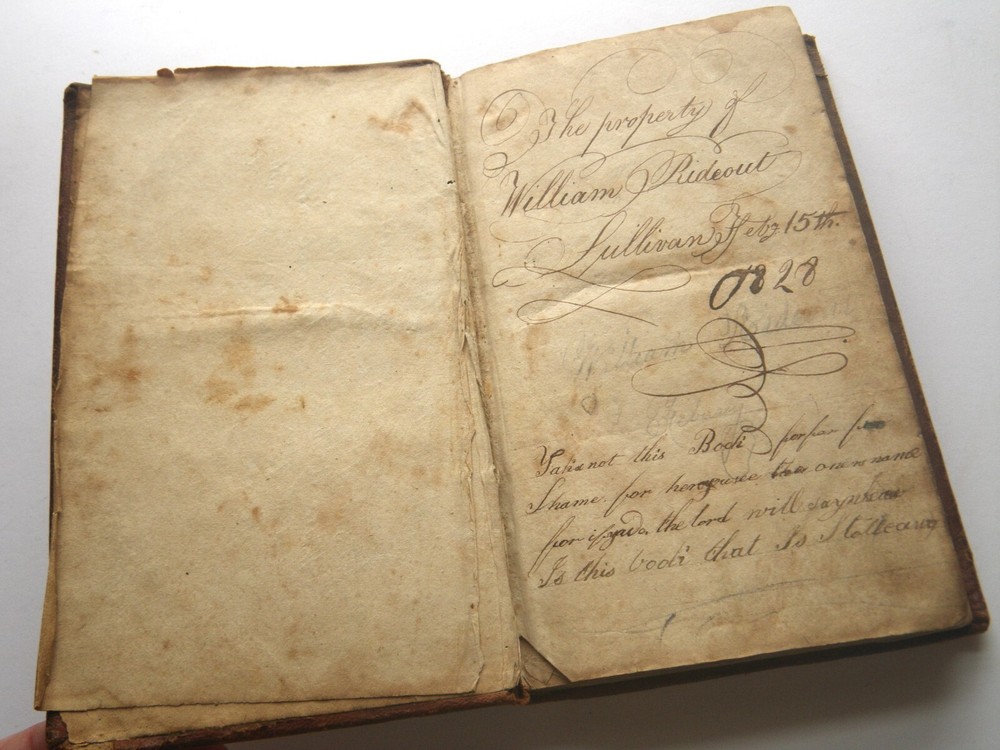 The property of
William Rideout
Sullivan Feby 15th.
1828
William Rideout
Take not this Book for fear for
Shame. for here you see the owners name
for if you do, the lord will say whear
Is this book that Is Stolle away